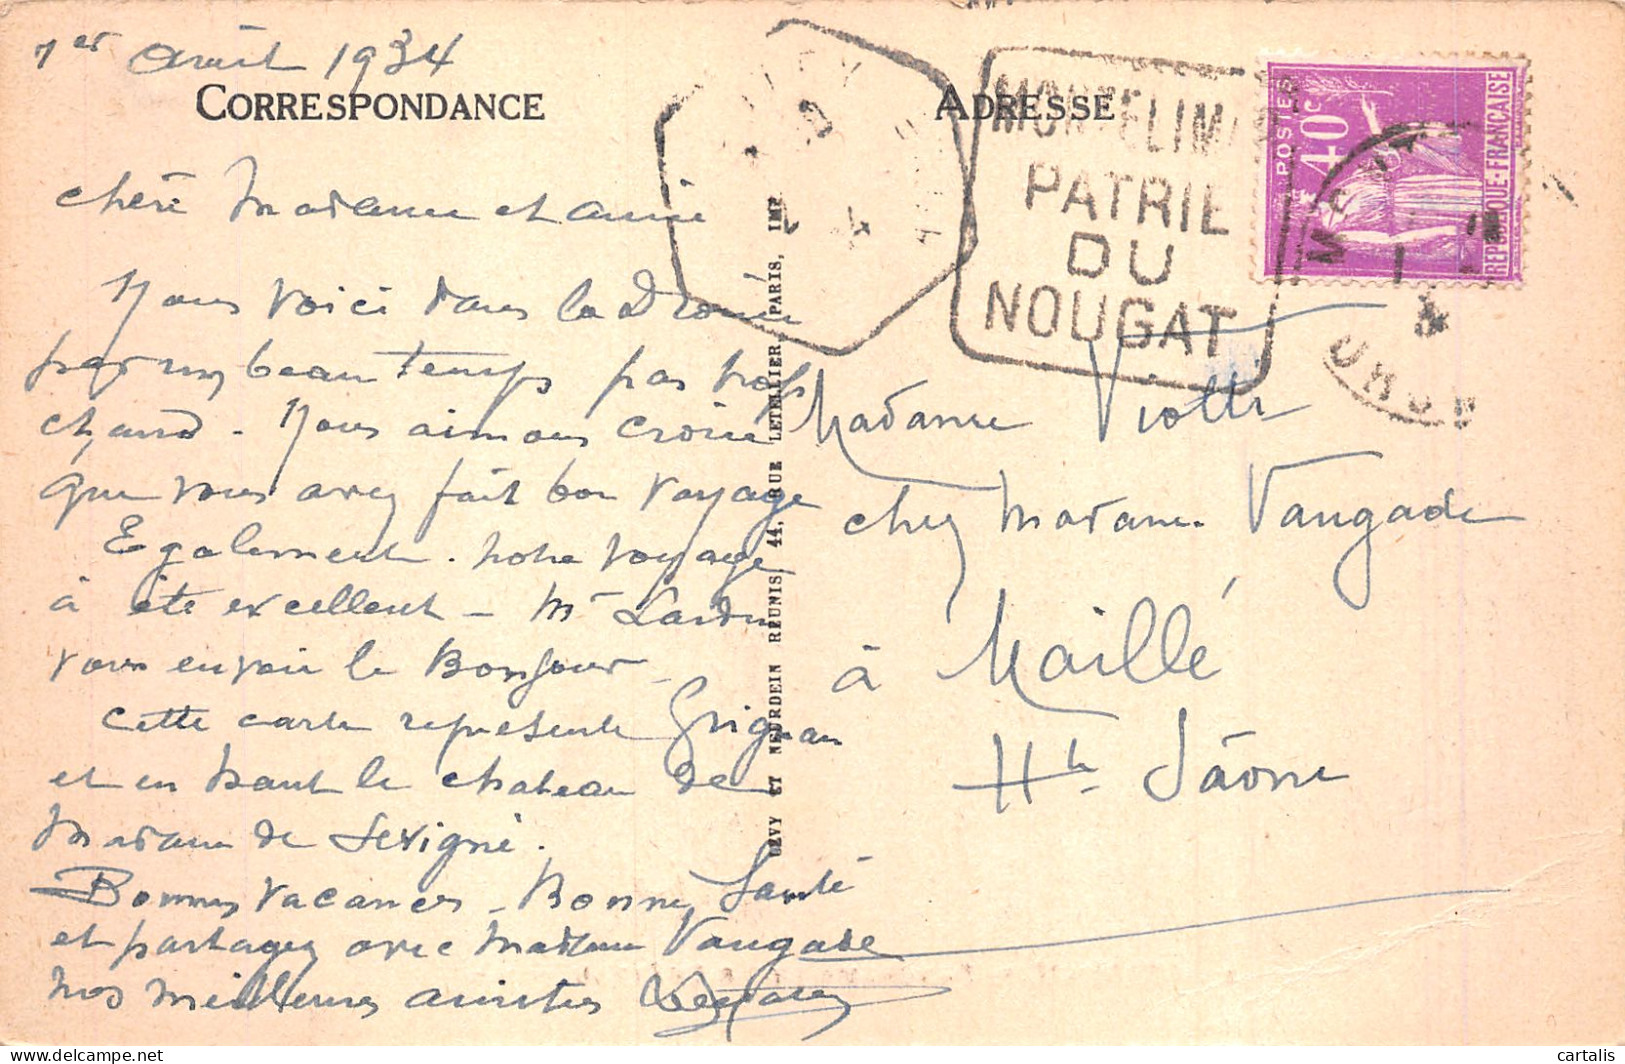 1er Août 1934
CORRESPONDANCE
chère Madame et amie
Nous voici dans la Drôme
par un beau temps pas trop
chaud - Nous aimons croire
que vous avez fait bon voyage
Egalement. notre voyage
à été excellent - Mr
vous envoie le Bonjour -
Cette carte représente Grignan
et en haut le chateau de
Madame de Sévigné.
Bonnes vacances - Bonne Santé
et partagez avec Madame Vaugade
nos meilleures amitiés
LEVY ET NEURDEIN REUNIS, 44, RUE LETELLIER, PARIS, IMP.
ADRESSE
MONTELIMAR
PATRIE
DU
NOUGAT
POSTES
40c
REPUBLIQUE-FRANCAISE
Madame Viotti
chez Madame Vaugade
à Maillé
Hte Sâone
cartalis
delcampe.net